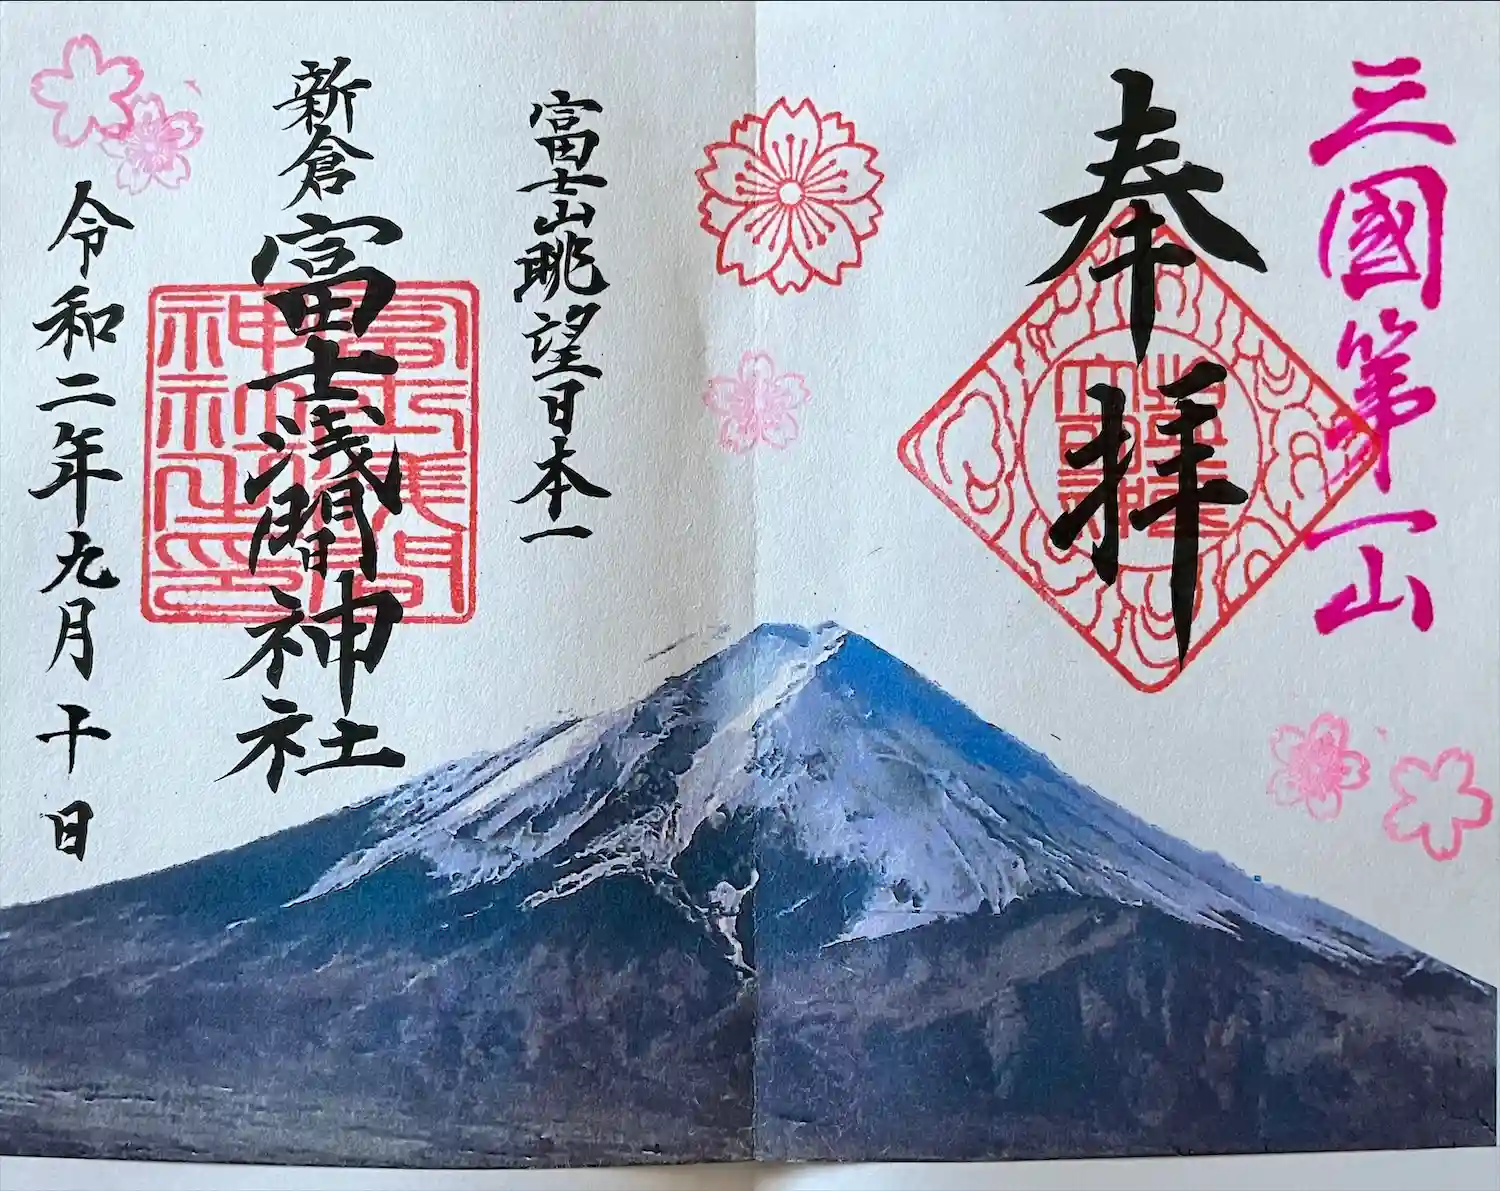 三國第一山
奉拝
富士山眺望日本一
新倉富士浅間神社
令和二年九月十日
富士浅間
神社之印